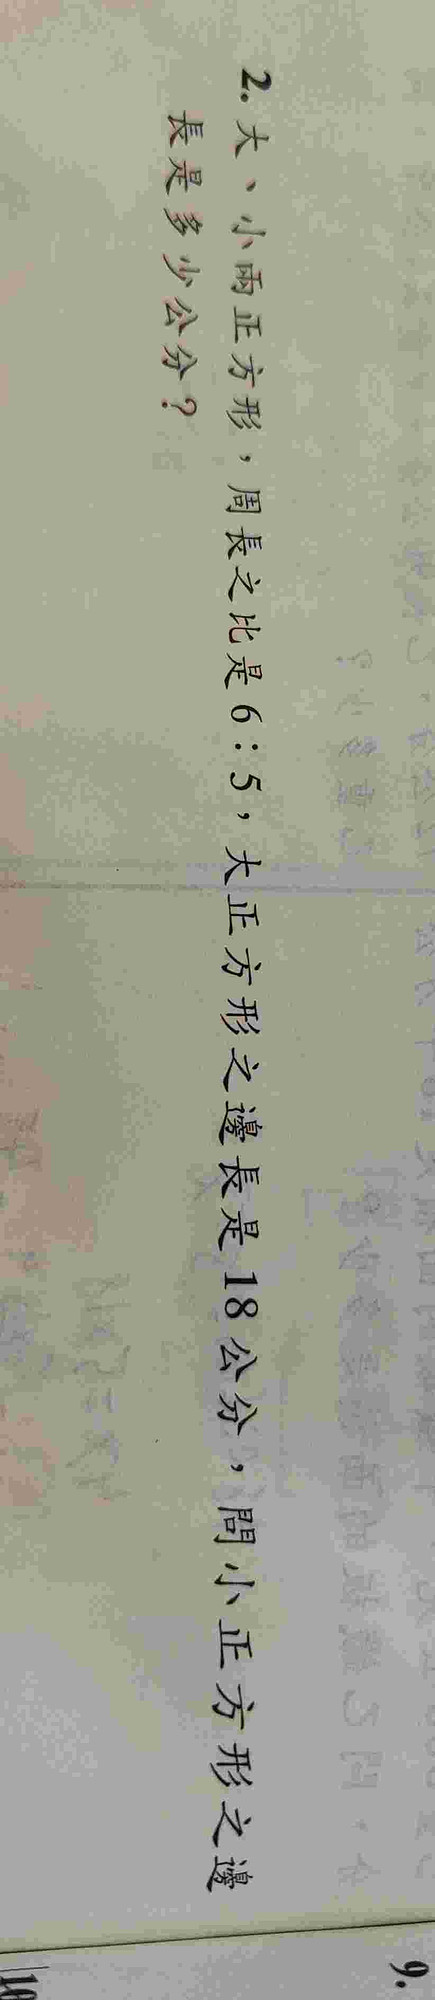 2. 大、小兩正方形，周長之比是6:5，大正方形之邊長是18公分，問小正方形之邊
長是多少公分？
9.
10